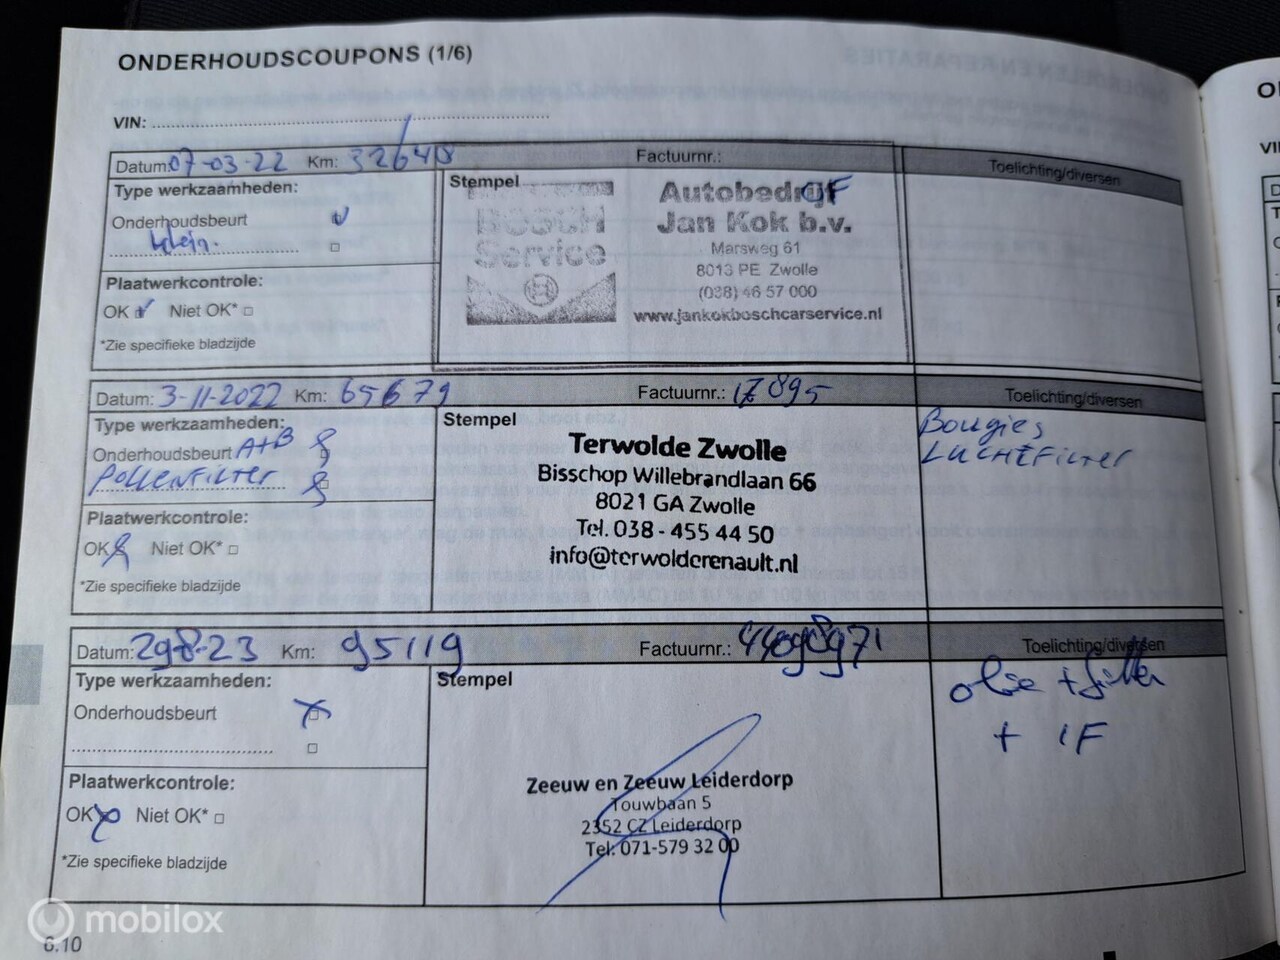 ONDERHOUDSCOUPONS (1/6)
VIN:
Datum: 07-03-22 Km: 32640 Factuurnr.: Toelichting/diversen
Type werkzaamheden:
Onderhoudsbeurt
klein.
Plaatwerkcontrole:
OK Niet OK*
*Zie specifieke bladzijde
Stempel
Bosch
Service
Autobedrijf
Jan Kok b.v.
Marsweg 61
8013 PE Zwolle
(038) 46 57 000
www.jankokboschcarservice.nl
Datum: 3-11-2022 Km: 65679 Factuurnr.: 17895 Toelichting/diversen
Type werkzaamheden:
Onderhoudsbeurt A+B
Pollenfilter
Plaatwerkcontrole:
OK Niet OK*
*Zie specifieke bladzijde
Stempel
Terwolde Zwolle
Bisschop Willebrandlaan 66
8021 GA Zwolle
Tel. 038 - 455 44 50
info@terwolderenault.nl
Bougies
Luchtfilter
Datum: 298-23 Km: 95119 Factuurnr.: Toelichting/diversen
Type werkzaamheden:
Onderhoudsbeurt
Plaatwerkcontrole:
OK Niet OK*
*Zie specifieke bladzijde
Stempel
Zeeuw en Zeeuw Leiderdorp
Touwbaan 5
2352 CZ Leiderdorp
Tel. 071-579 32 00
olie + filter
+ IF
6.10
mobilox